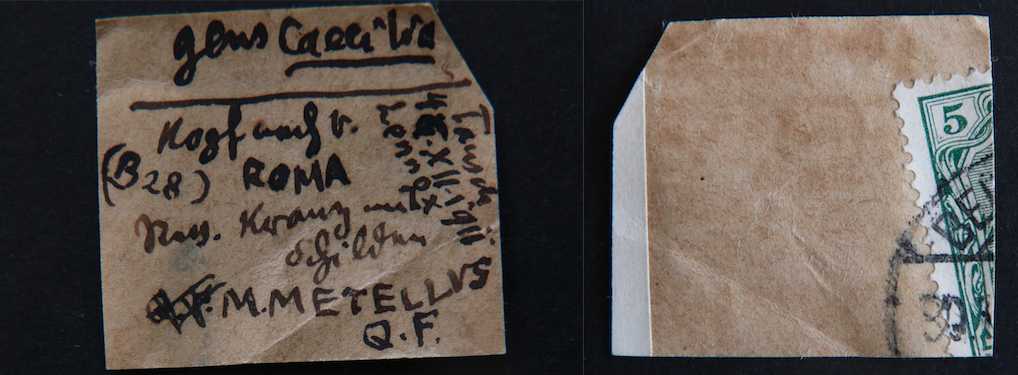 gens Caecilia
Kopf nach r.
(B28) ROMA
Rvs. Kranz mit
Schilden
M.METELLVS
Q.F.
Tausch
5